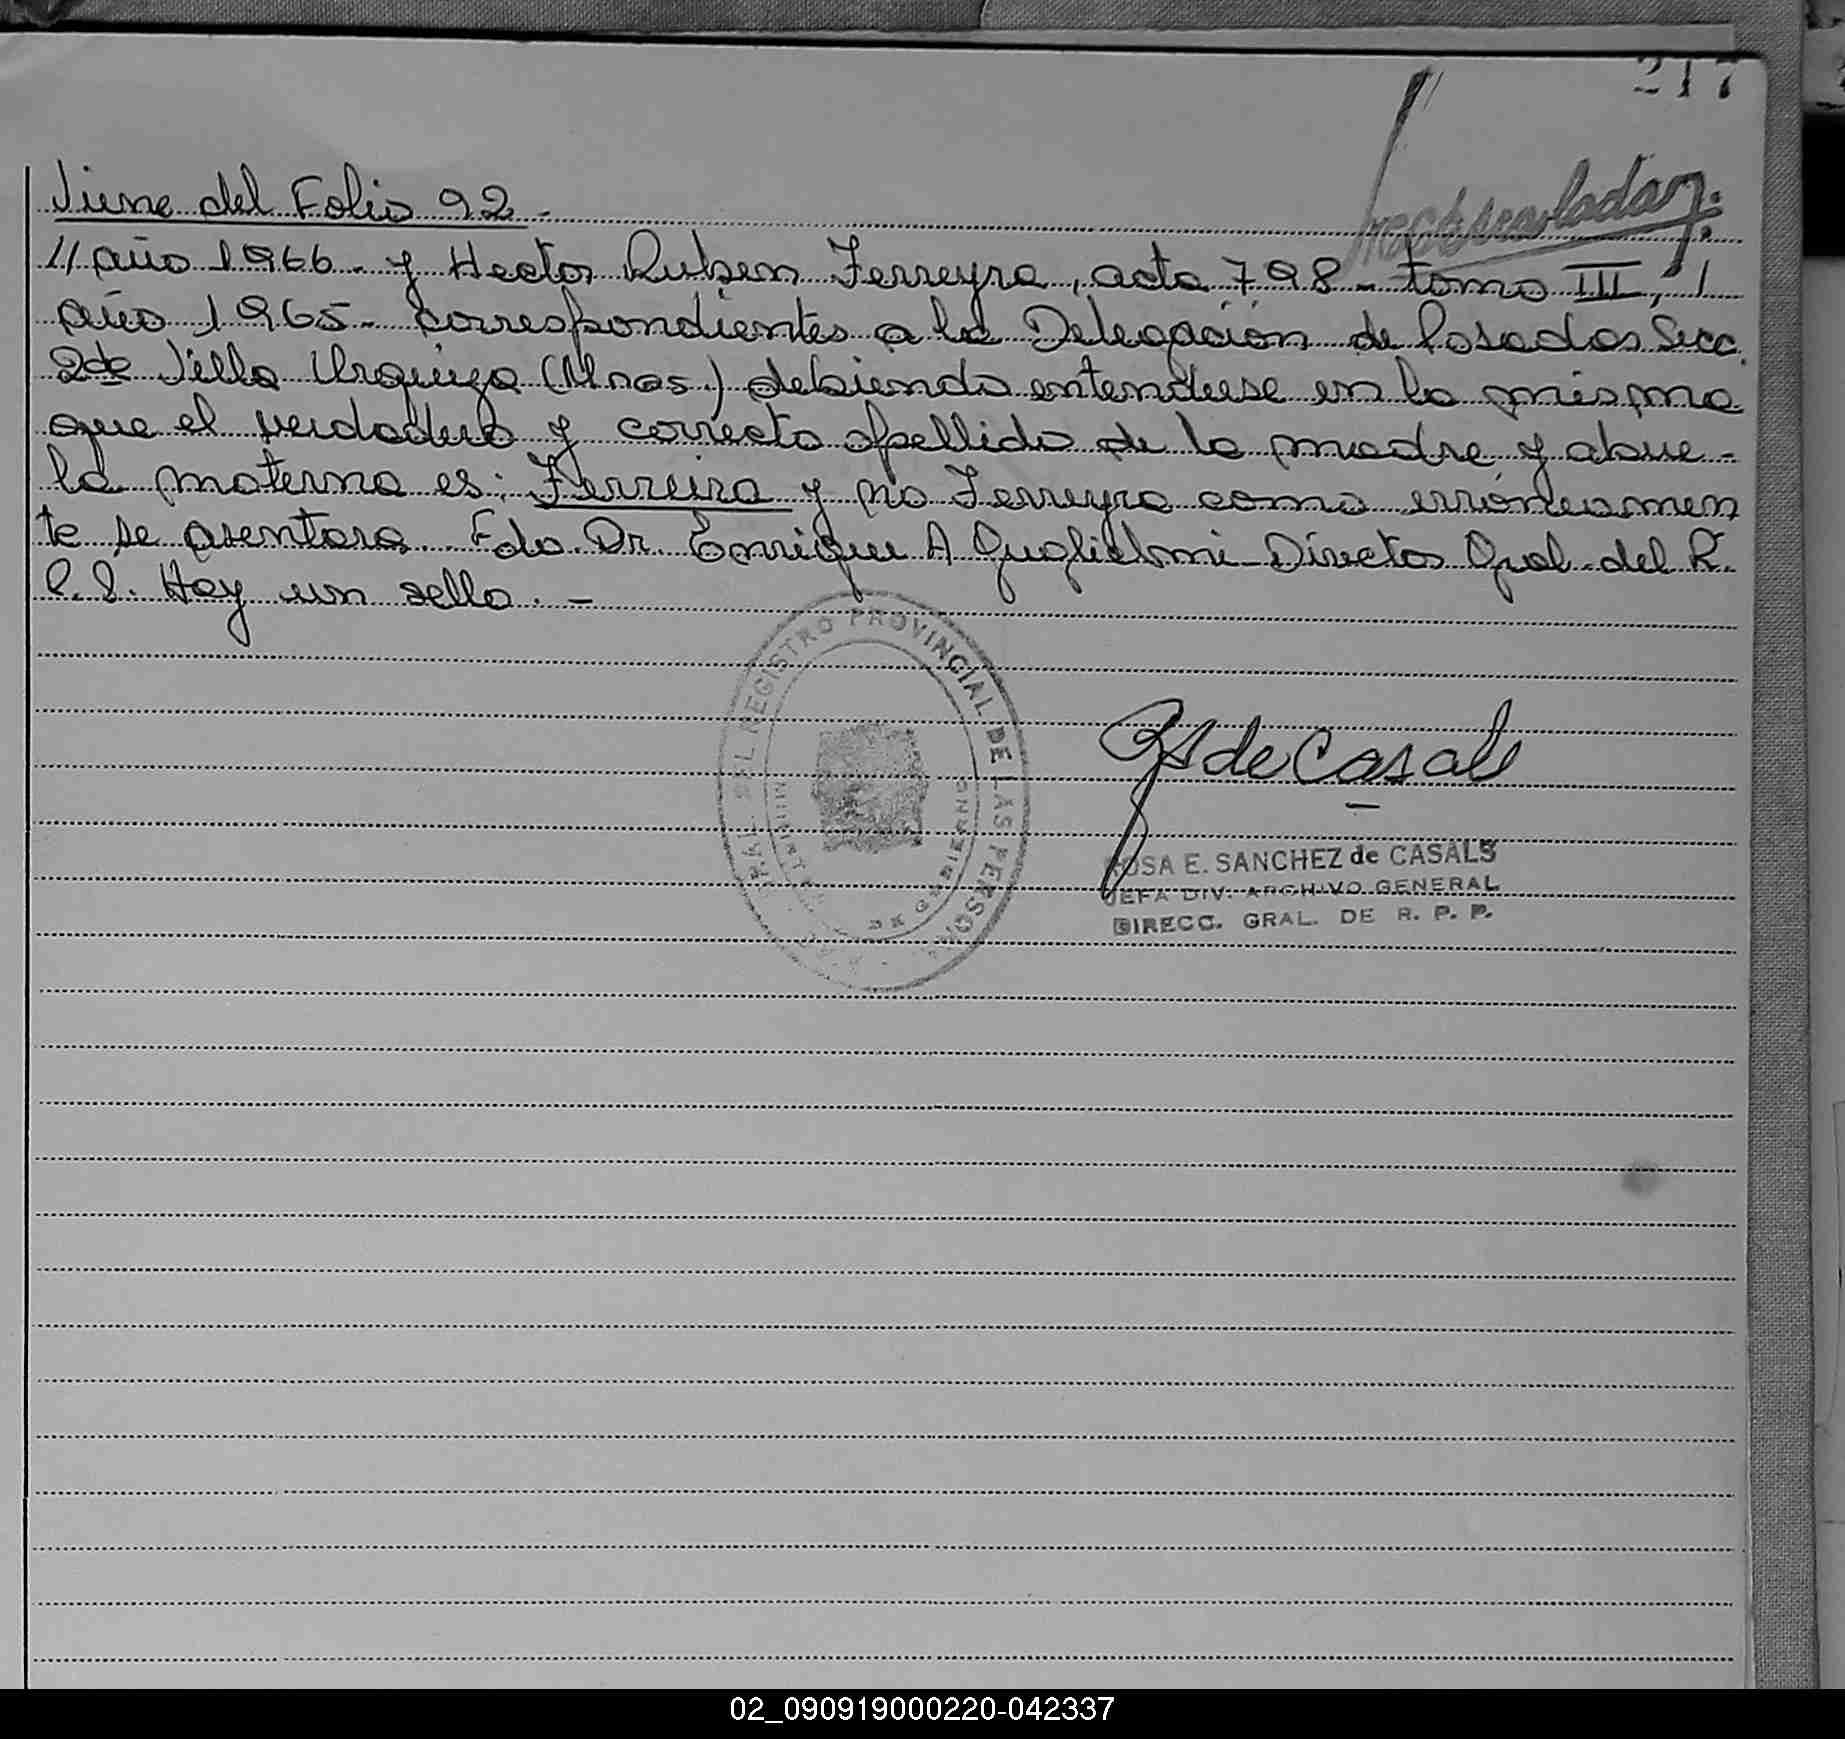 217
Viene del Folio 92.-
// año 1966.- y Hector Ruben Ferreyra, acta 798- tomo III,-/
año 1965- correspondientes a la Delegación de Posadas Secc.
2da Villa Urquiza (Mnes.) debiendo entenderse en la misma
que el verdadero y correcto apellido de la madre y abue-
la materna es: Ferreira y no Ferreyra como erróneamen
te se asentara. Fdo. Dr. Enrique A Guglielmi- Director Gral. del R.
P.P. Hay un sello.-
REGISTRO PROVINCIAL DE LAS PERSONAS
DE GOBIERNO
RS de Casals
ROSA E. SANCHEZ de CASALS
JEFA DIV. ARCHIVO GENERAL
DIRECC. GRAL. DE R. P. P.
02_090919000220-042337